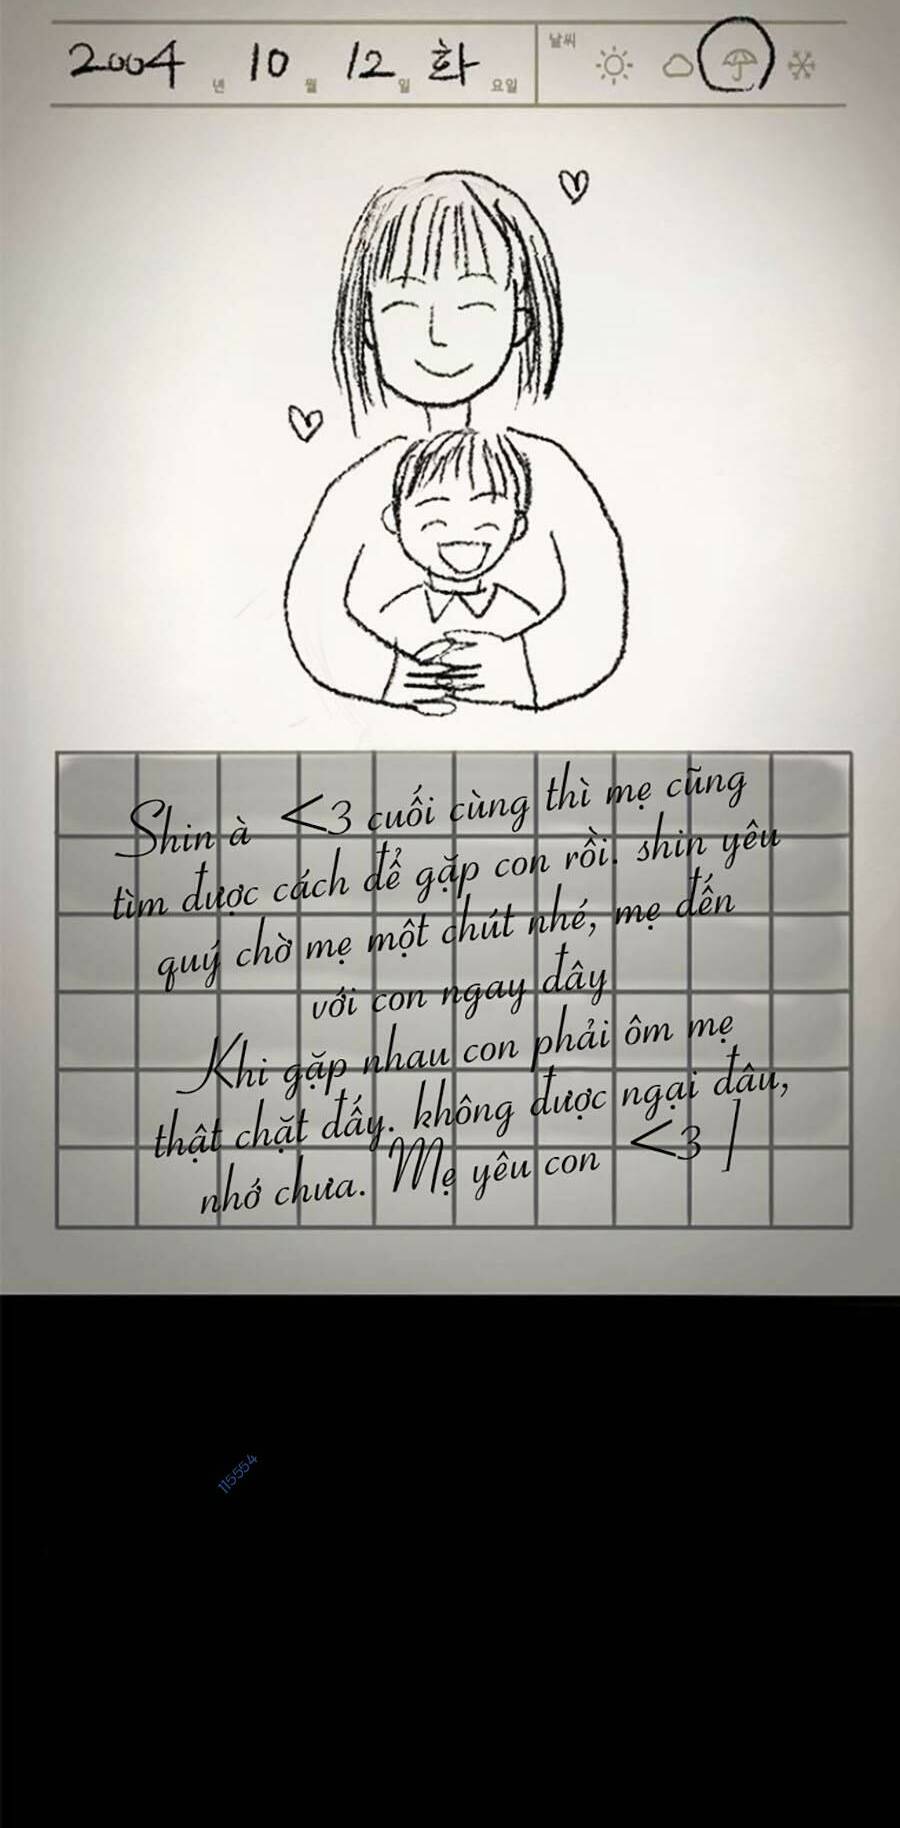 2004 년 10 월 12 일 화 요일 날씨
Shin à <3 cuối cùng thì mẹ cũng
tìm được cách để gặp con rồi. shin yêu
quý chờ mẹ một chút nhé, mẹ đến
với con ngay đây
Khi gặp nhau con phải ôm mẹ
thật chặt đấy. không được ngại đâu,
nhớ chưa. Mẹ yêu con <3 ]
115554